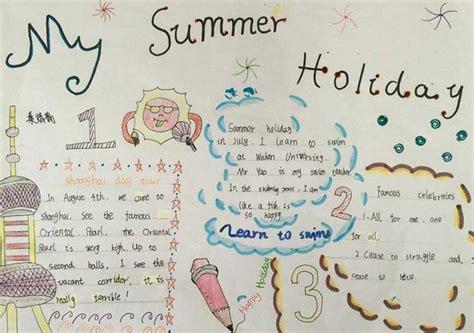 My Summer Holiday
1
shanghai day tour
In August 4th, we come to
Shanghai. See the famous
Oriental Pearl. the Oriental
Pearl is very high. Up to
second balls, I see the
vacant corridor, it is
really terrible!
Summer holiday
in July. I learn to swim
at Wuhan University.
Mr Yao is my swim teacher.
In the swimming pool, I am
like a fish is
so happy.
Learn to swim
2
famous celebreties
1. All for one, one
for all.
2 Cease to struggle and
cease to live.
3
Happy Holiday